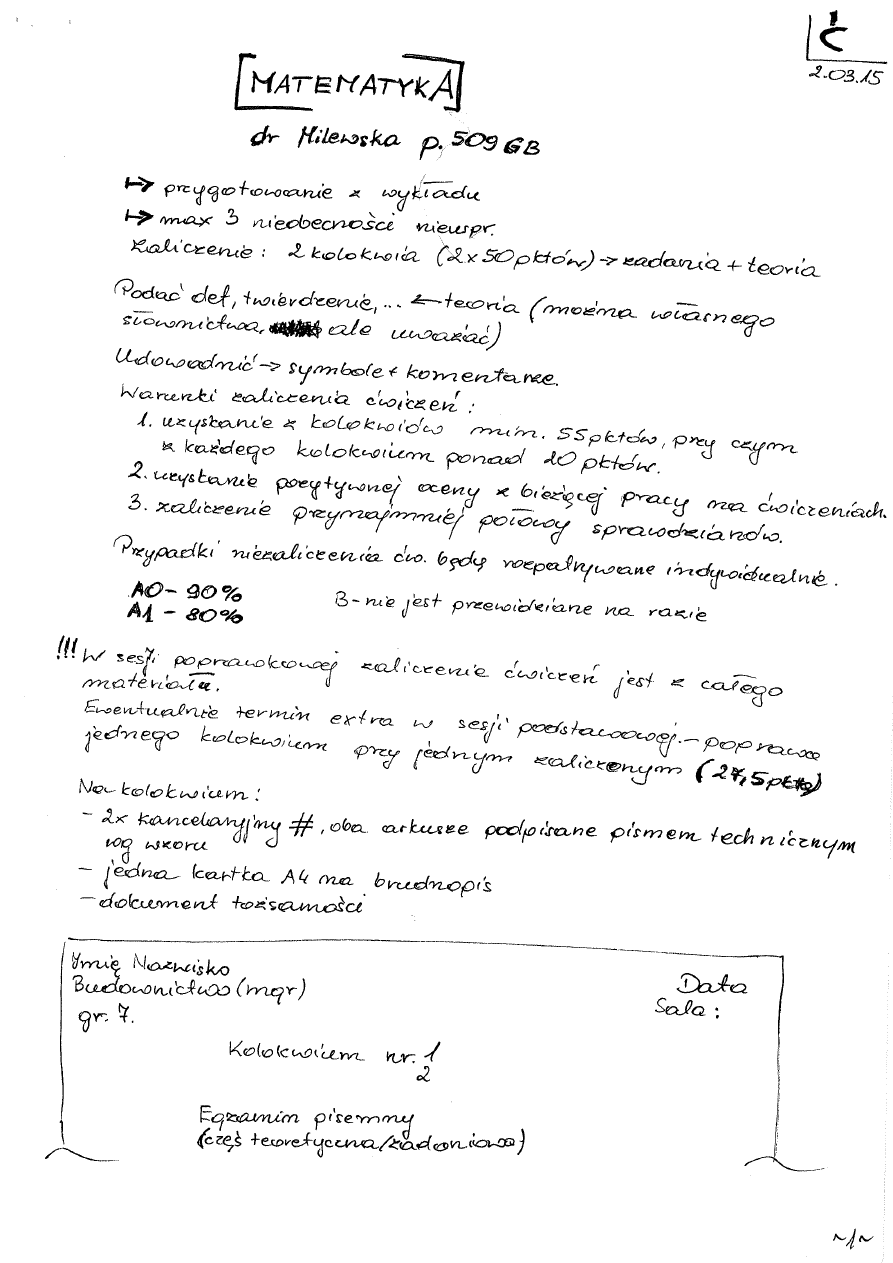 Ć
2.03.15
MATEMATYKA
dr Milewska p. 509 GB
↦ przygotowanie z wykładu
↦ max 3 nieobecności nieuspr.
Zaliczenie: 2 kolokwia (2x50pktów) → zadania + teoria
Podać def, twierdzenie, ... ← teoria (można własnego
słownictwa, ale uważać)
Udowodnić → symbole + komentarze.
Warunki zaliczenia ćwiczeń:
1. uzyskanie z kolokwiów min. 55pktów, przy czym
z każdego kolokwium ponad 20 pktów.
2. uzyskanie pozytywnej oceny z bieżącej pracy na ćwiczeniach.
3. zaliczenie przynajmniej połowy sprawdzianów.
Przypadki niezaliczenia ćw. będą rozpatrywane indywidualnie.
A0 - 90%
A1 - 80%
B - nie jest przewidziane na razie
!!! W sesji poprawkowej zaliczenie ćwiczeń jest z całego
materiału.
Ewentualnie termin extra w sesji podstawowej. - poprawa
jednego kolokwium przy jednym zaliczonym (27,5pkta)
Na kolokwium:
- 2x kancelaryjny #, oba arkusze podpisane pismem technicznym
wg wzoru
- jedna kartka A4 na brudnopis
- dokument tożsamości
Imię Nazwisko
Budownictwo (mgr)
gr. 7.
Data
Sala:
Kolokwium nr. 1
2
Egzamin pisemny
(częś teoretyczna/zadaniowa)
~1~